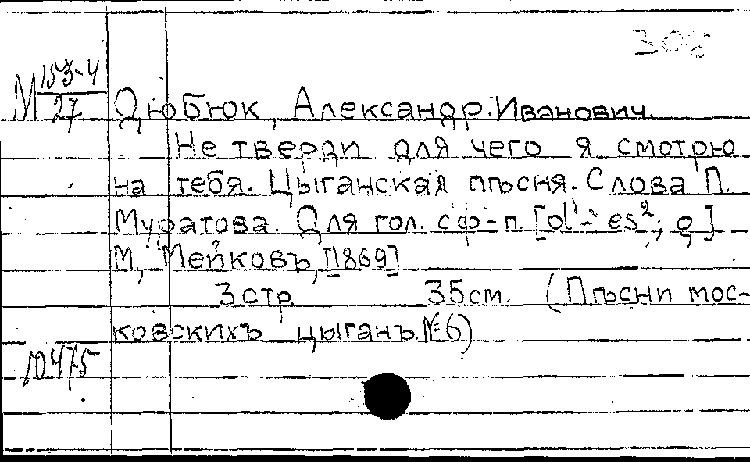 308
М 153-4
27
Дюбюк, Александр Иванович.
Не тверди для чего я смотрю
на тебя. Цыганская пѣсня. Слова П.
Муратова. Для гол. с ф-п. [d¹-es²; g]
М, Мейковъ, [1869]
3 стр. 35 см. (Пѣсни мос-
ковскихъ цыганъ. № 6)
10475